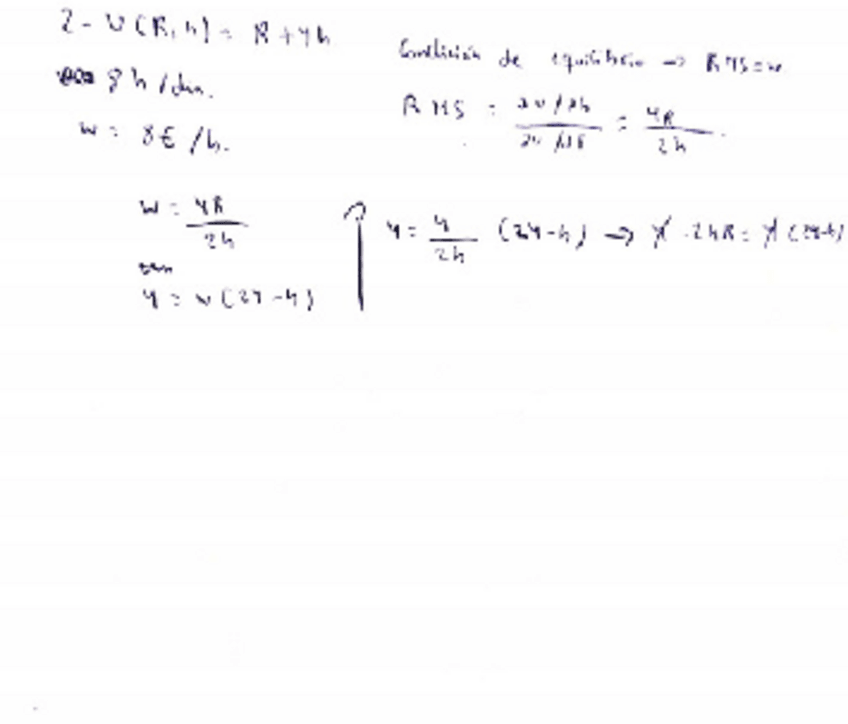 2- U(R, h) = R + 4h
8 h / dia.
w = 8€ / h.
Condición de equilibrio → RMS = w
RMS = = 4R / 2h
w = 4R / 2h
4 = w (24 - h)
4 = 4 / 2h (24 - h) → 4 · 2hR = 4 (24-h)